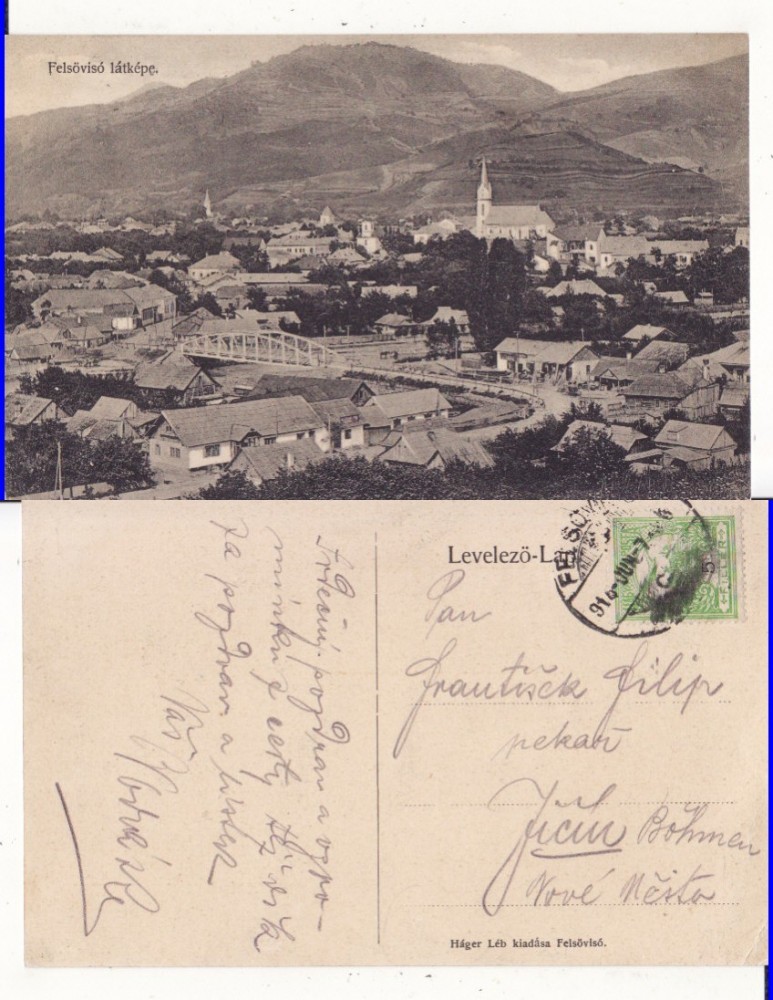 Felsövisó látképe.
Levelezö-Lap
FELSÖVI
914 JUN.-7
C
5
FILLÉR
Pan
František Filip
pekař
Jičín Böhmen
Nové Město
Srdečný pozdrav a vzpo-
mínku z cesty
za pozdrav a
Váš
Háger Léb kiadása Felsövisó.